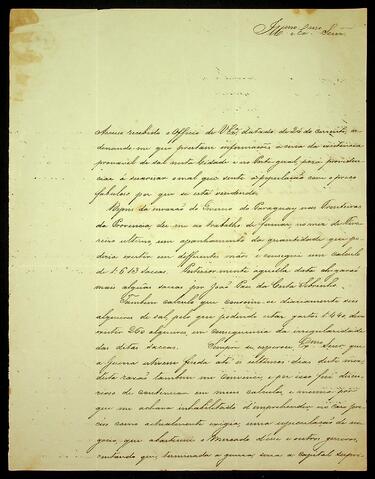 Illmo e Exmo Senr
Accuso recebido o Officio de VExa datado de 26 do corrente, or-
denando-me que prestasse informações acerca da existencia
provavel de sal nesta Cidade e no Porto geral, para providen-
ciar á suavisar o mal que sente a população com o preço
fabuloso por que se está vendendo.
Depois da invasão do Governo do Paraguay nas Fronteiras
da Provincia, dei-me ao trabalho de formar, no mez de Feve-
reiro ultimo, um apanhamento da quantidade que po-
deria existir em differentes mãos e consegui um calculo
de 1:613 saccas. Posteriormente áquella data chegarão
mais algũas saccas por João Pau da Costa Sobrinho.
Tambem calculo que consome-se diariamente seis
alqueires de sal, pelo que podendo estar gastos 1:440 deve
existir 260 alqueires, em consequencia da irregularidade
das ditas saccas. Sempre se esperou Exmo Senr que
a Guerra estivesse finda até o ultimo dia deste mez,
desta razão tambem me convenci, e por isso fui dei-
xoso de continuar em meus calculos, e mesmo por
que me achava inhabilitado d'emprehender
como actualmente exigia, uma especulação de ne-
gocio, que abastecesse o Mercado d'esse e outros generos,
contando que, terminada a guerra seria a capital supri-